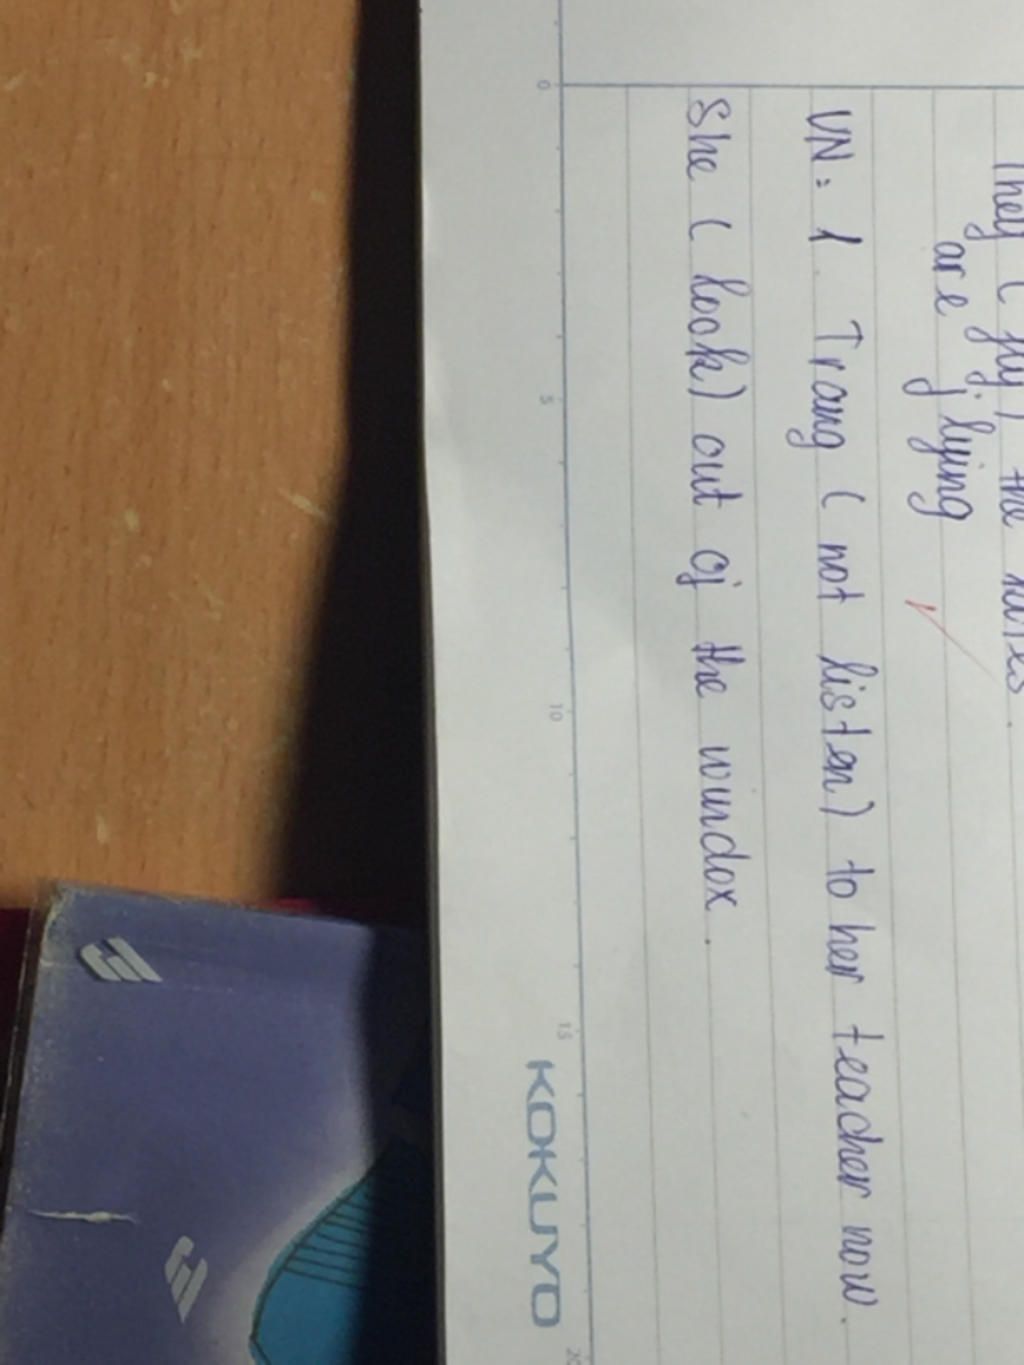 They ( fly ) the kites.
are flying
VN: 1 Trang ( not listen) to her teacher now.
She ( look) out of the windox.
0 5 10 15 20
KOKUYO